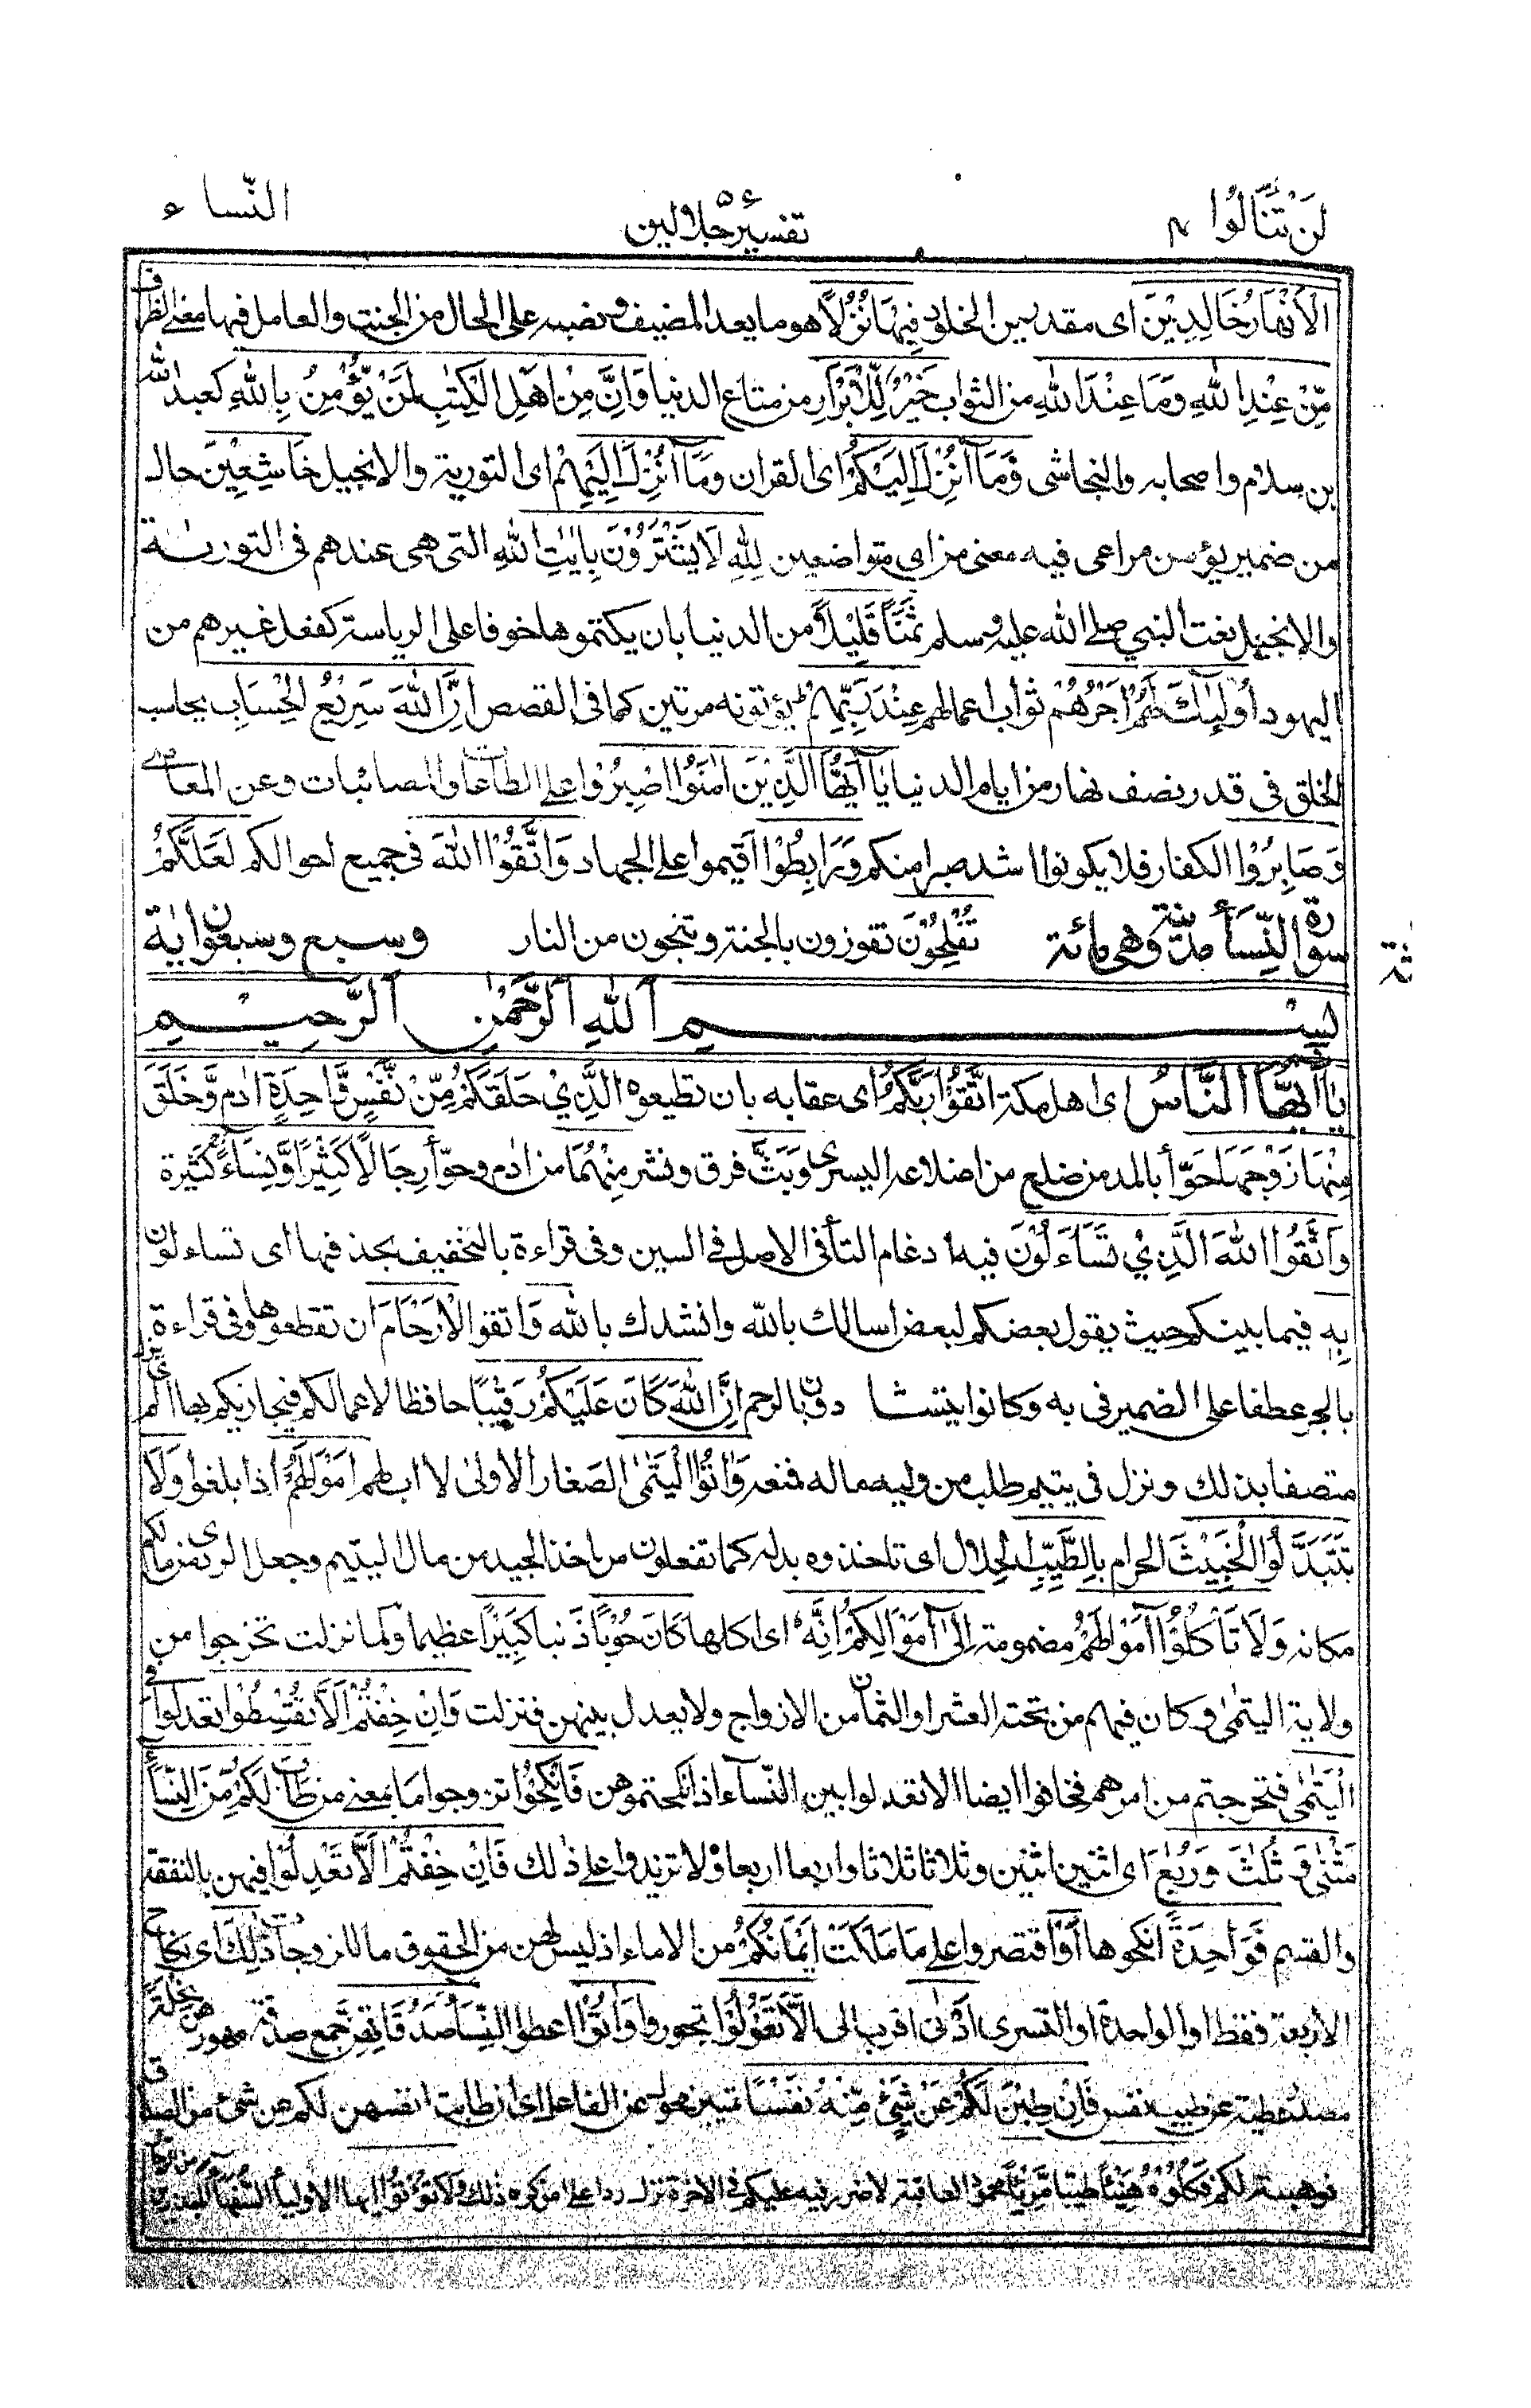 لَنْ تَنَالُوا ٤
تفسير جلالين
النّساء
الْأَنْهَارُ خَالِدِيْنَ اى مقدرين الخلود فِيْهَا نُزُلًا هو ما يعد للضيف ونصبه على الحال من الجنت والعامل فيها معنى الظرف
مِّنْ عِنْدِ اللهِ وَمَا عِنْدَ اللهِ من الثواب خَيْرٌ لِّلْأَبْرَارِ من متاع الدنيا وَاِنَّ مِنْ اَهْلِ الْكِتٰبِ لَمَنْ يُّؤْمِنُ بِاللهِ كعبد الله
بن سلام واصحابه والنجاشى وَمَا اُنْزِلَ اِلَيْكُمْ اى القران وَمَا اُنْزِلَ اِلَيْهِمْ اى التورية والانجيل خَاشِعِيْنَ حال
من ضمير يؤمن مراعى فيه معنى من اى متواضعين لِلهِ لَا يَشْتَرُوْنَ بِاٰيٰتِ اللهِ التى هى عندهم فى التورىة
والانجيل بعت النبي صلى الله عليه وسلم ثَمَنًا قَلِيْلًا من الدنيا بان يكتموها خوفا على الرياسة كفعل غيرهم من
اليهود اُولٰٓئِكَ لَهُمْ اَجْرُهُمْ ثواب اعمالهم عِنْدَ رَبِّهِمْ يؤتونه مرتين كما فى القصص اِنَّ اللهَ سَرِيْعُ الْحِسَابِ يحاسب
الخلق فى قدر نصف نهار من ايام الدنيا يٰٓاَيُّهَا الَّذِيْنَ اٰمَنُوا اصْبِرُوْا على الطاعات والمصائبات وعن المعاصى
وَصَابِرُوْا الكفار فلا يكونوا اشد صبرا منكم وَرَابِطُوْا اقيموا على الجهاد وَاتَّقُوا اللهَ فى جميع احوالكم لَعَلَّكُمْ
تُفْلِحُوْنَ تفوزون بالجنة وتنجون من النار
سورة النِّسَاء مدنية وهى مائة وسبع وسبعون اية
بِسْمِ اللهِ الرَّحْمٰنِ الرَّحِيْمِ
يٰٓاَيُّهَا النَّاسُ اى اهل مكة اتَّقُوْا رَبَّكُمُ اى عقابه بان تطيعوه الَّذِيْ خَلَقَكُمْ مِّنْ نَّفْسٍ وَّاحِدَةٍ ادم وَّخَلَقَ
مِنْهَا زَوْجَهَا حَوّاء بالمد من ضلع من اضلاعه اليسرى وَبَثَّ فرق ونشر مِنْهُمَا من ادم وحوّاء رِجَالًا كَثِيْرًا وَّنِسَاءً كثيرة
وَاتَّقُوا اللهَ الَّذِيْ تَسَاءَلُوْنَ فيه ادغام التاء فى الاصل فى السين وفى قراءة بالتخفيف بحذفها اى تساءلون
بِهٖ فيما بينكم حيث يقول بعضكم لبعض اسالك بالله وانشدك بالله وَ اتقوا الْاَرْحَامَ ان تقطعوها وفى قراءة
بالجر عطفا على الضمير فى به وكانوا يتناشدون بالرحم اِنَّ اللهَ كَانَ عَلَيْكُمْ رَقِيْبًا حافظا لاعمالكم فيجازيكم بها اى لم يزل
متصفا بذلك ونزل فى يتيم طلب من وليه ماله فمنعه وَاٰتُوا الْيَتٰمٰى الصغار الاولى لا اب لهم اَمْوَالَهُمْ اذا بلغوا وَلَا
تَتَبَدَّلُوا الْخَبِيْثَ الحرام بِالطَّيِّبِ الحلال اى تاخذوه بدله كما تفعلون من اخذ الجيد من مال اليتيم وجعل الردى من مالكم
مكانه وَلَا تَاْكُلُوْٓا اَمْوَالَهُمْ مضمومة اِلٰٓى اَمْوَالِكُمْ اِنَّهٗ اى اكلها كَانَ حُوْبًا ذنبا كَبِيْرًا عظيما ولما نزلت تخرجوا من
ولاية اليتمى وكان فيهم من تحته العشر او الثمان من الازواج ولا يعدل بينهن فنزلت وَاِنْ خِفْتُمْ اَلَّا تُقْسِطُوْا تعدلوا فى
الْيَتٰمٰى فتحرجتم من امرهم فخافوا ايضا الا تعدلوا بين النّساء اذا نكحتموهن فَانْكِحُوْا تزوجوا مَا بمعنى من طَابَ لَكُمْ مِّنَ النِّسَاء
مَثْنٰى وَثُلٰثَ وَرُبٰعَ اى اثنين اثنين وثلاثا ثلاثا واربعا اربعا ولا تزيدوا على ذلك فَاِنْ خِفْتُمْ اَلَّا تَعْدِلُوْا فيهن بالنفقة
والقسم فَوَاحِدَةً انكحوها اَوْ اقتصروا على مَا مَلَكَتْ اَيْمَانُكُمْ من الاماء اذ ليس لهن من الحقوق ما للزوجات ذٰلِكَ اى نكاح
الاربعة فقط او الواحدة او التسرى اَدْنٰى اقرب الى اَلَّا تَعُوْلُوْا تجوروا وَاٰتُوا اعطوا النِّسَاءَ صَدُقَاتِهِنَّ جمع صدقة مهورهن نِحْلَةً
مصدر عطية عن طيب نفس فَاِنْ طِبْنَ لَكُمْ عَنْ شَيْءٍ مِّنْهُ نَفْسًا تمييز محول عن الفاعل اى ان طابت انفسهن لكم عن شئ من الصداق
فوهبنه لكم فَكُلُوْهُ هَنِيْئًا طيبا مَّرِيْئًا محمود العاقبة لا ضرر فيه عليكم فى الاخرة نزل ردا على من كره ذلك وَلَا تُؤْتُوا ايها الاولياء السُّفَهَاءَ المبذرين